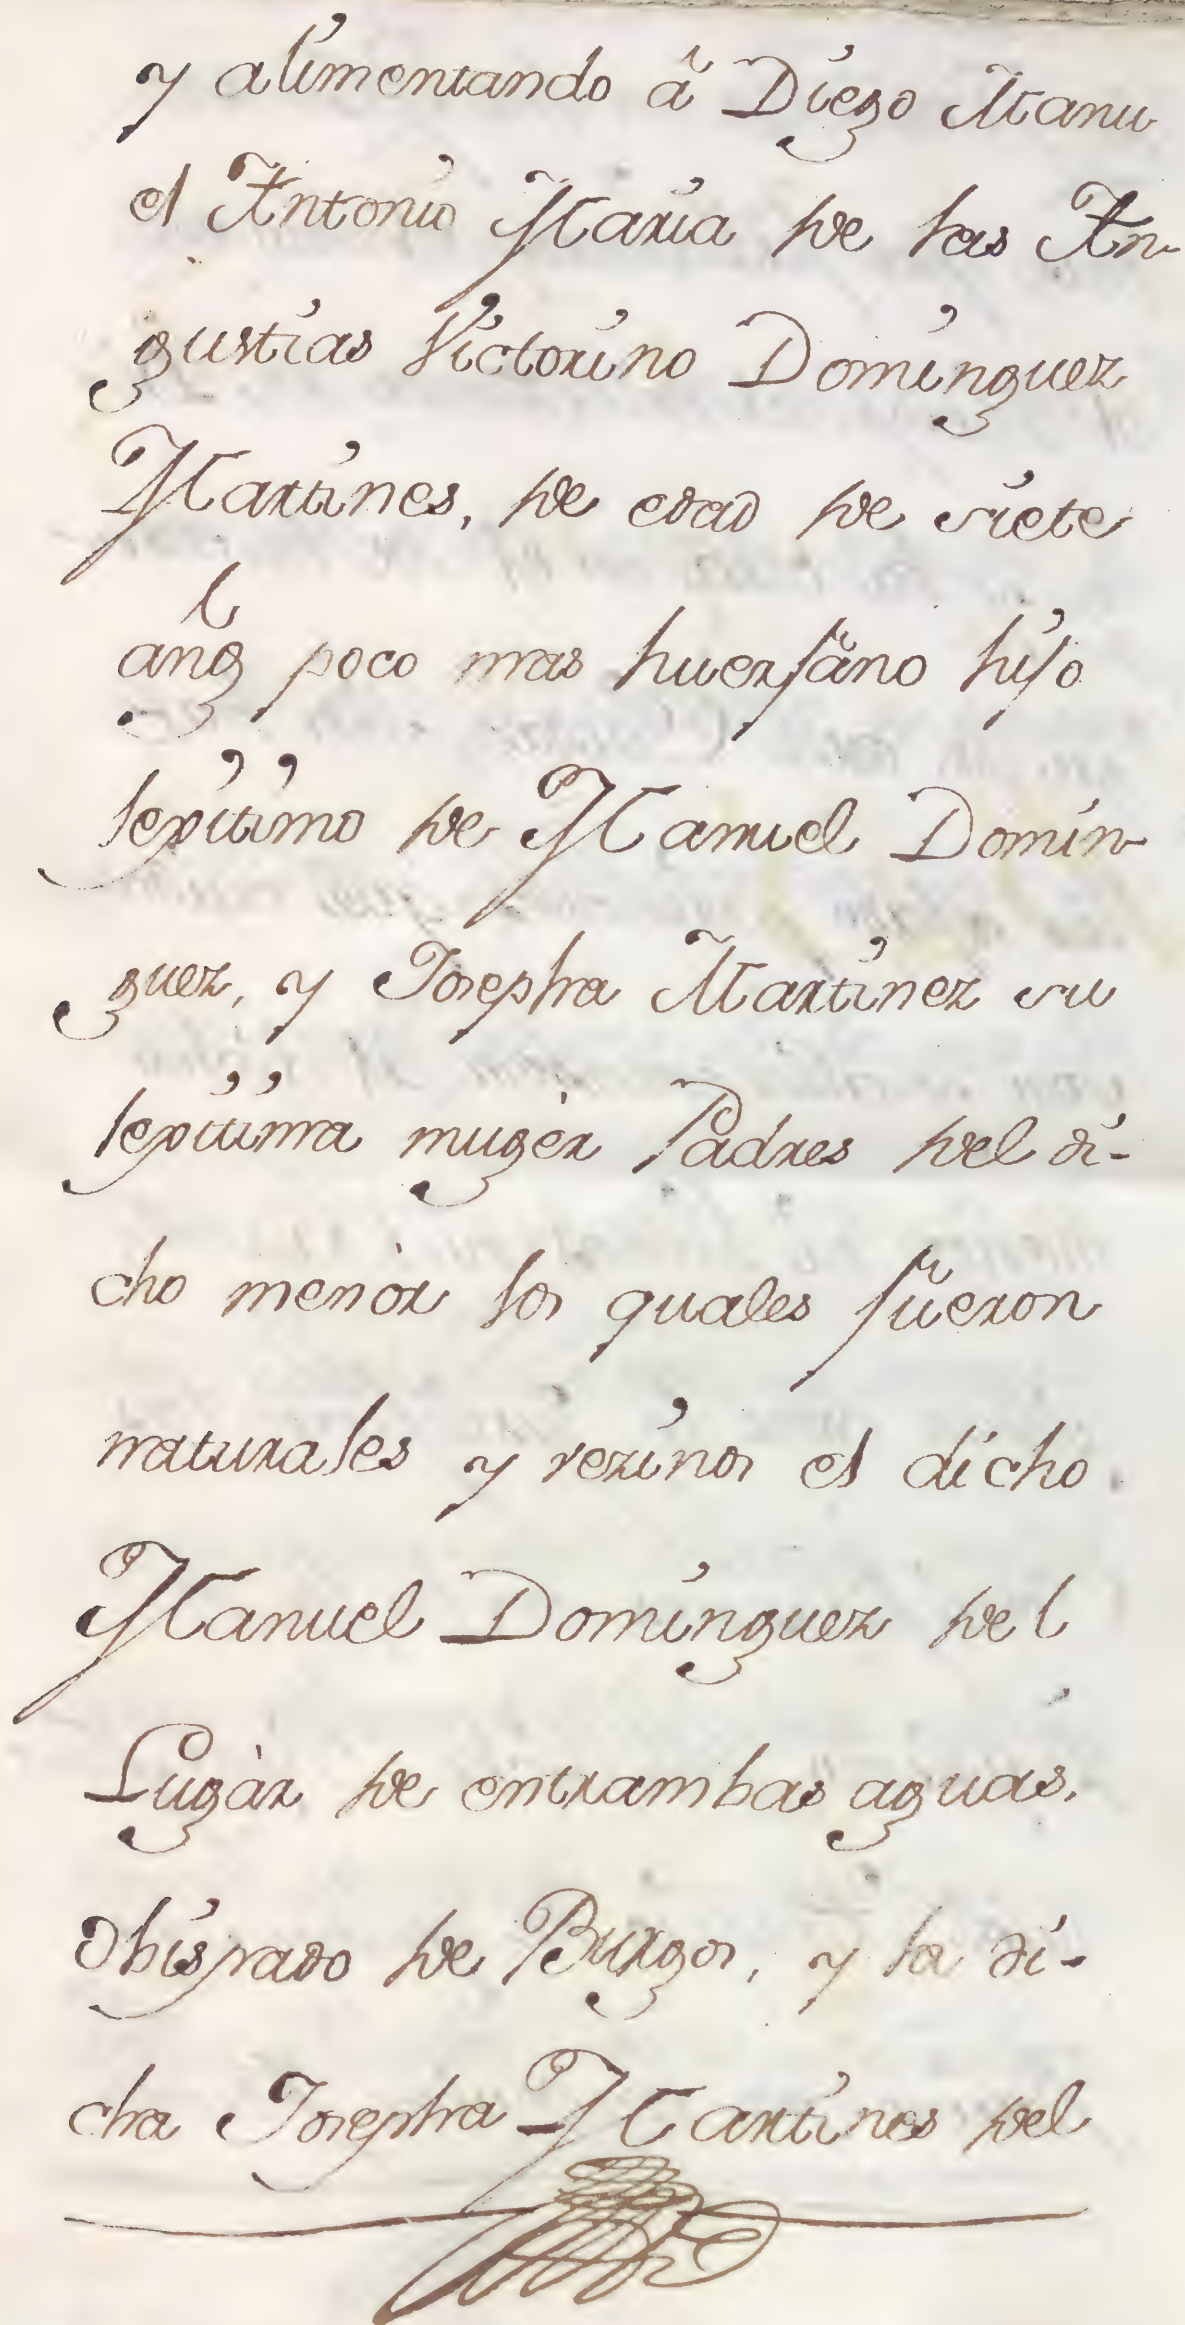 y alimentando â Diego Manu
el Antonio Maria de las An-
gustias Victorino Dominguez
Martines, de edad de siete
añs poco mas huerfano hijo
lexitimo de Manuel Domin-
guez, y Josepha Martinez su
lexitima mugèr Padres del di-
cho menòr los quales fueron
naturales y vezinos el dicho
Manuel Dominguez del
Lugàr de entrambas aguas.
Obispado de Burgos, y la di-
cha Josepha Martines del